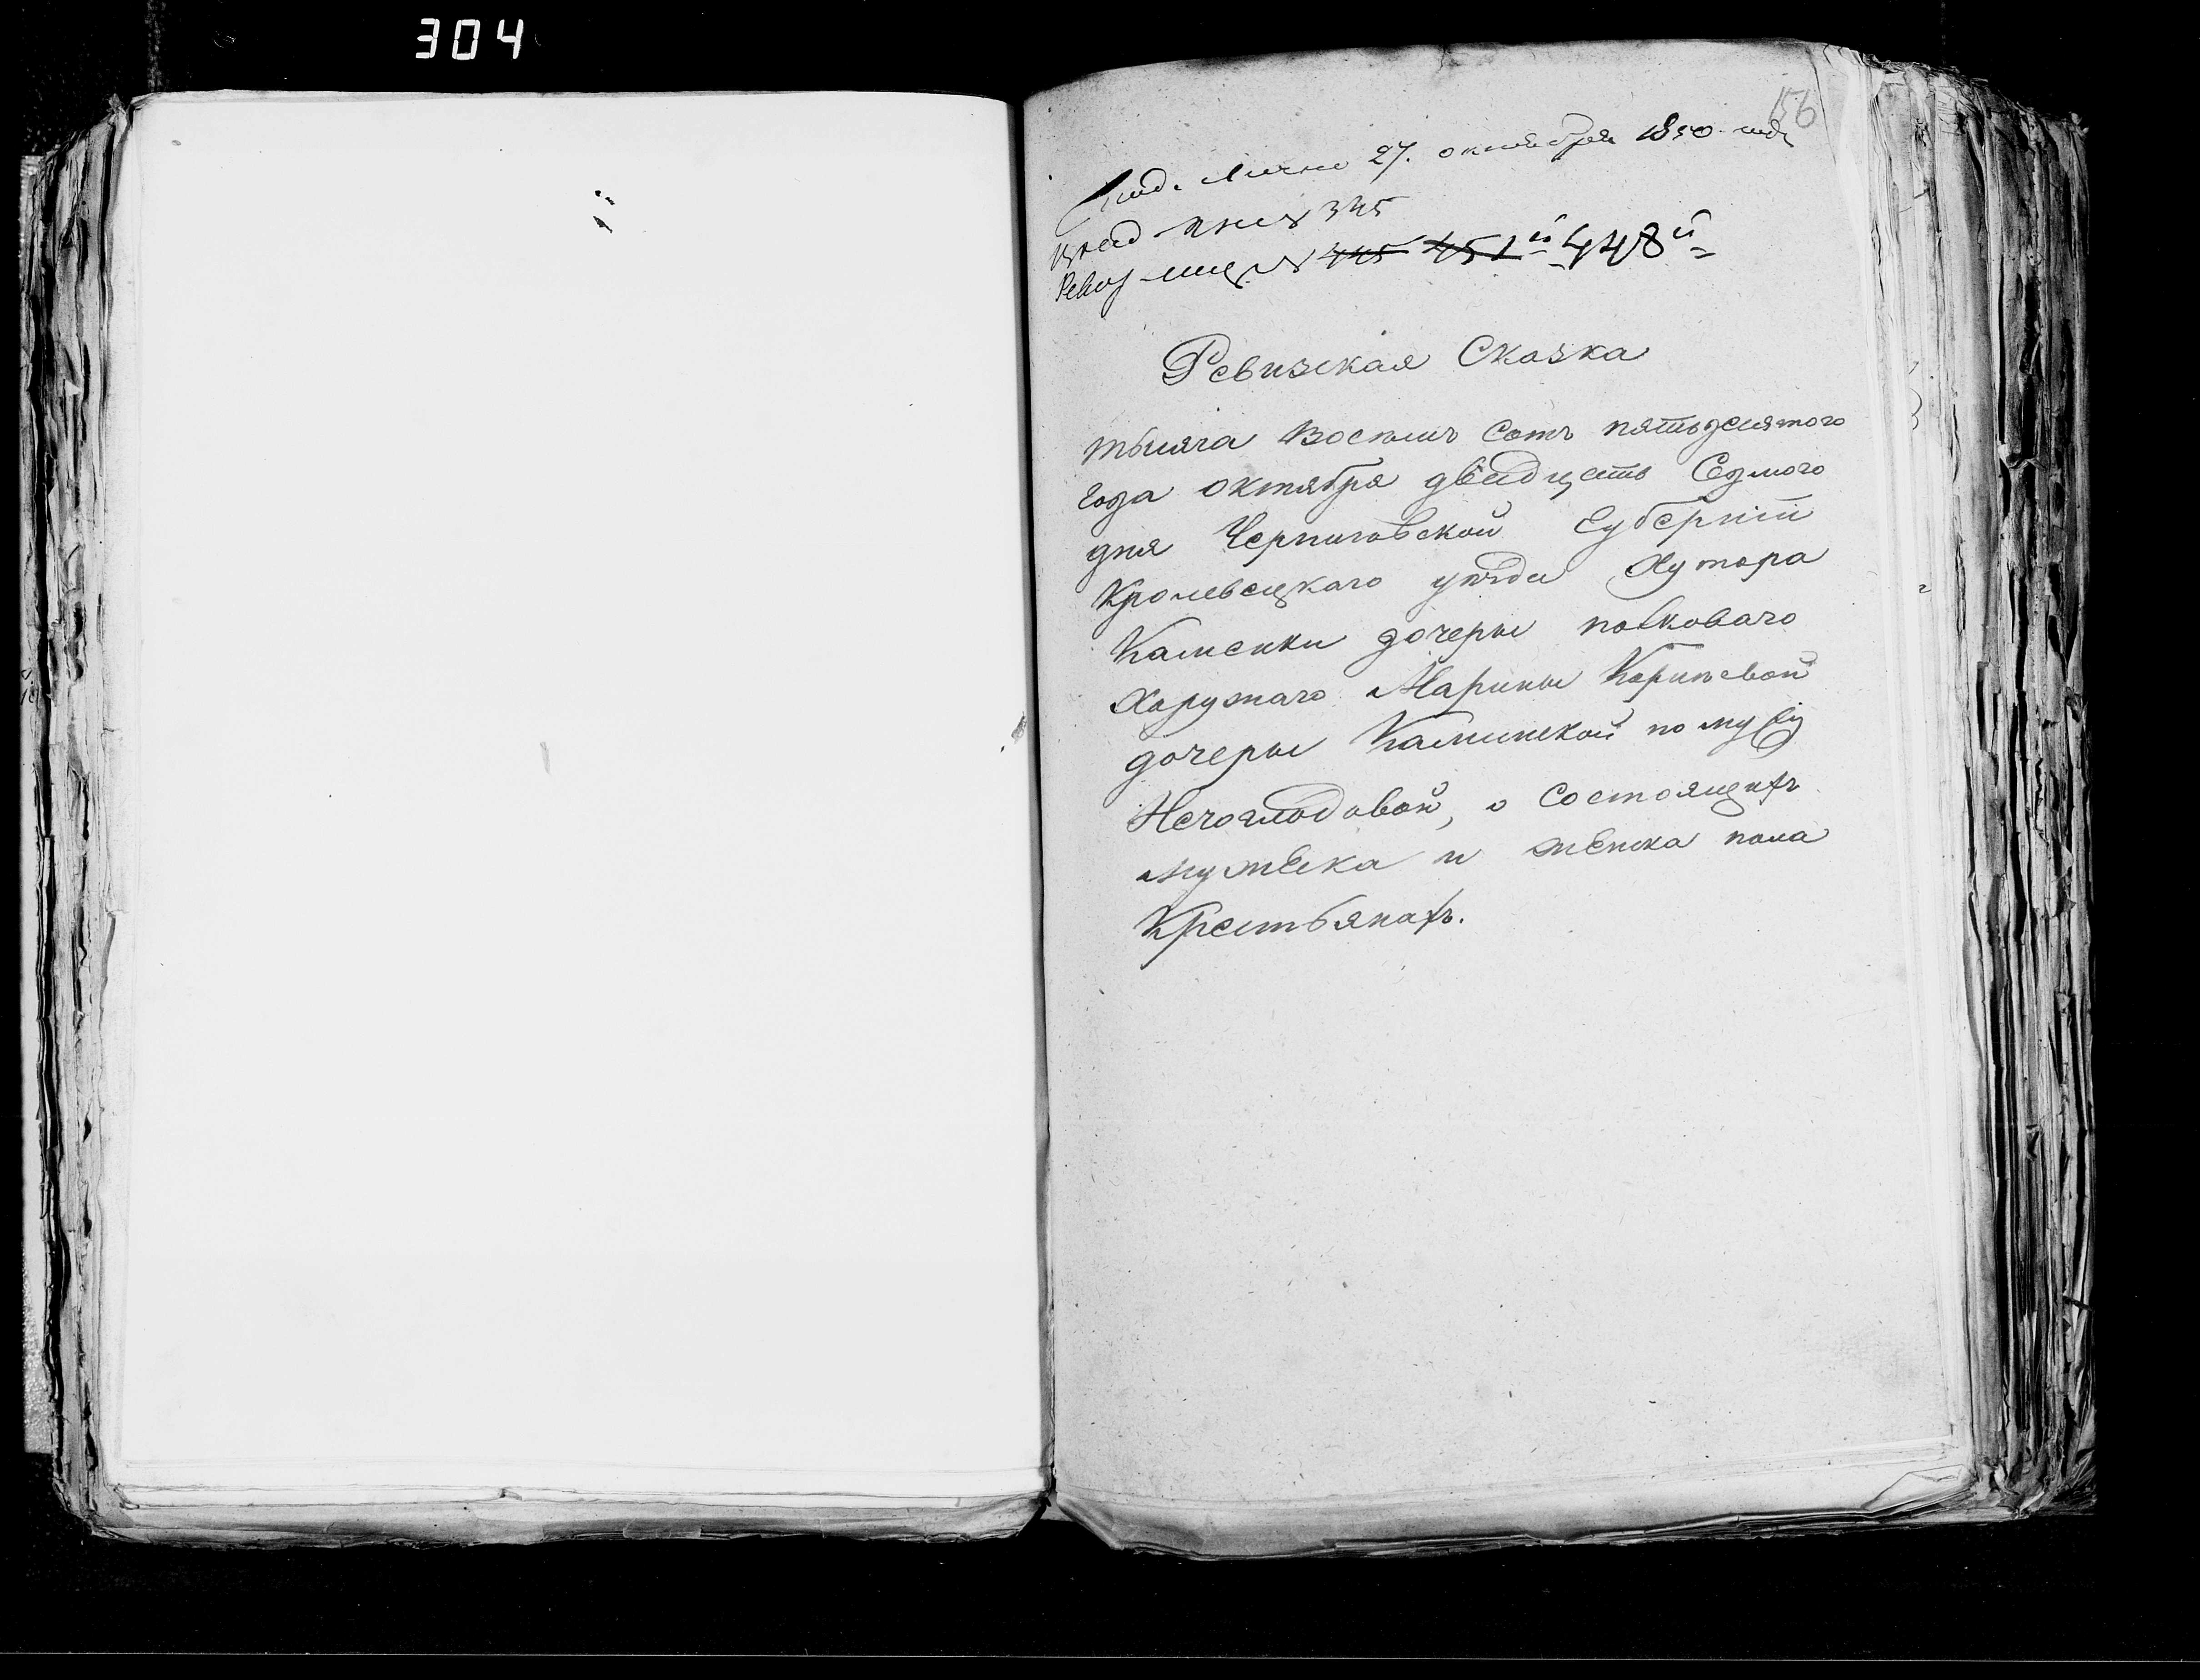 304
156
Под. Лично 27. октября 1850 года
345
Ревиз № 445 451й 448й
Ревизская Сказка
тысяча Восемь Сотъ пятьдесятого
года октября двадцать Седмого
дня Черниговской Губерніи
Кролевецкаго уѣзда Хутора
Каменки дочеры полковаго
Харужаго Марины Корнѣевой
дочеры Каминской по мужу
о состоящихъ
мужеска и женска пола
Крестьянахъ.